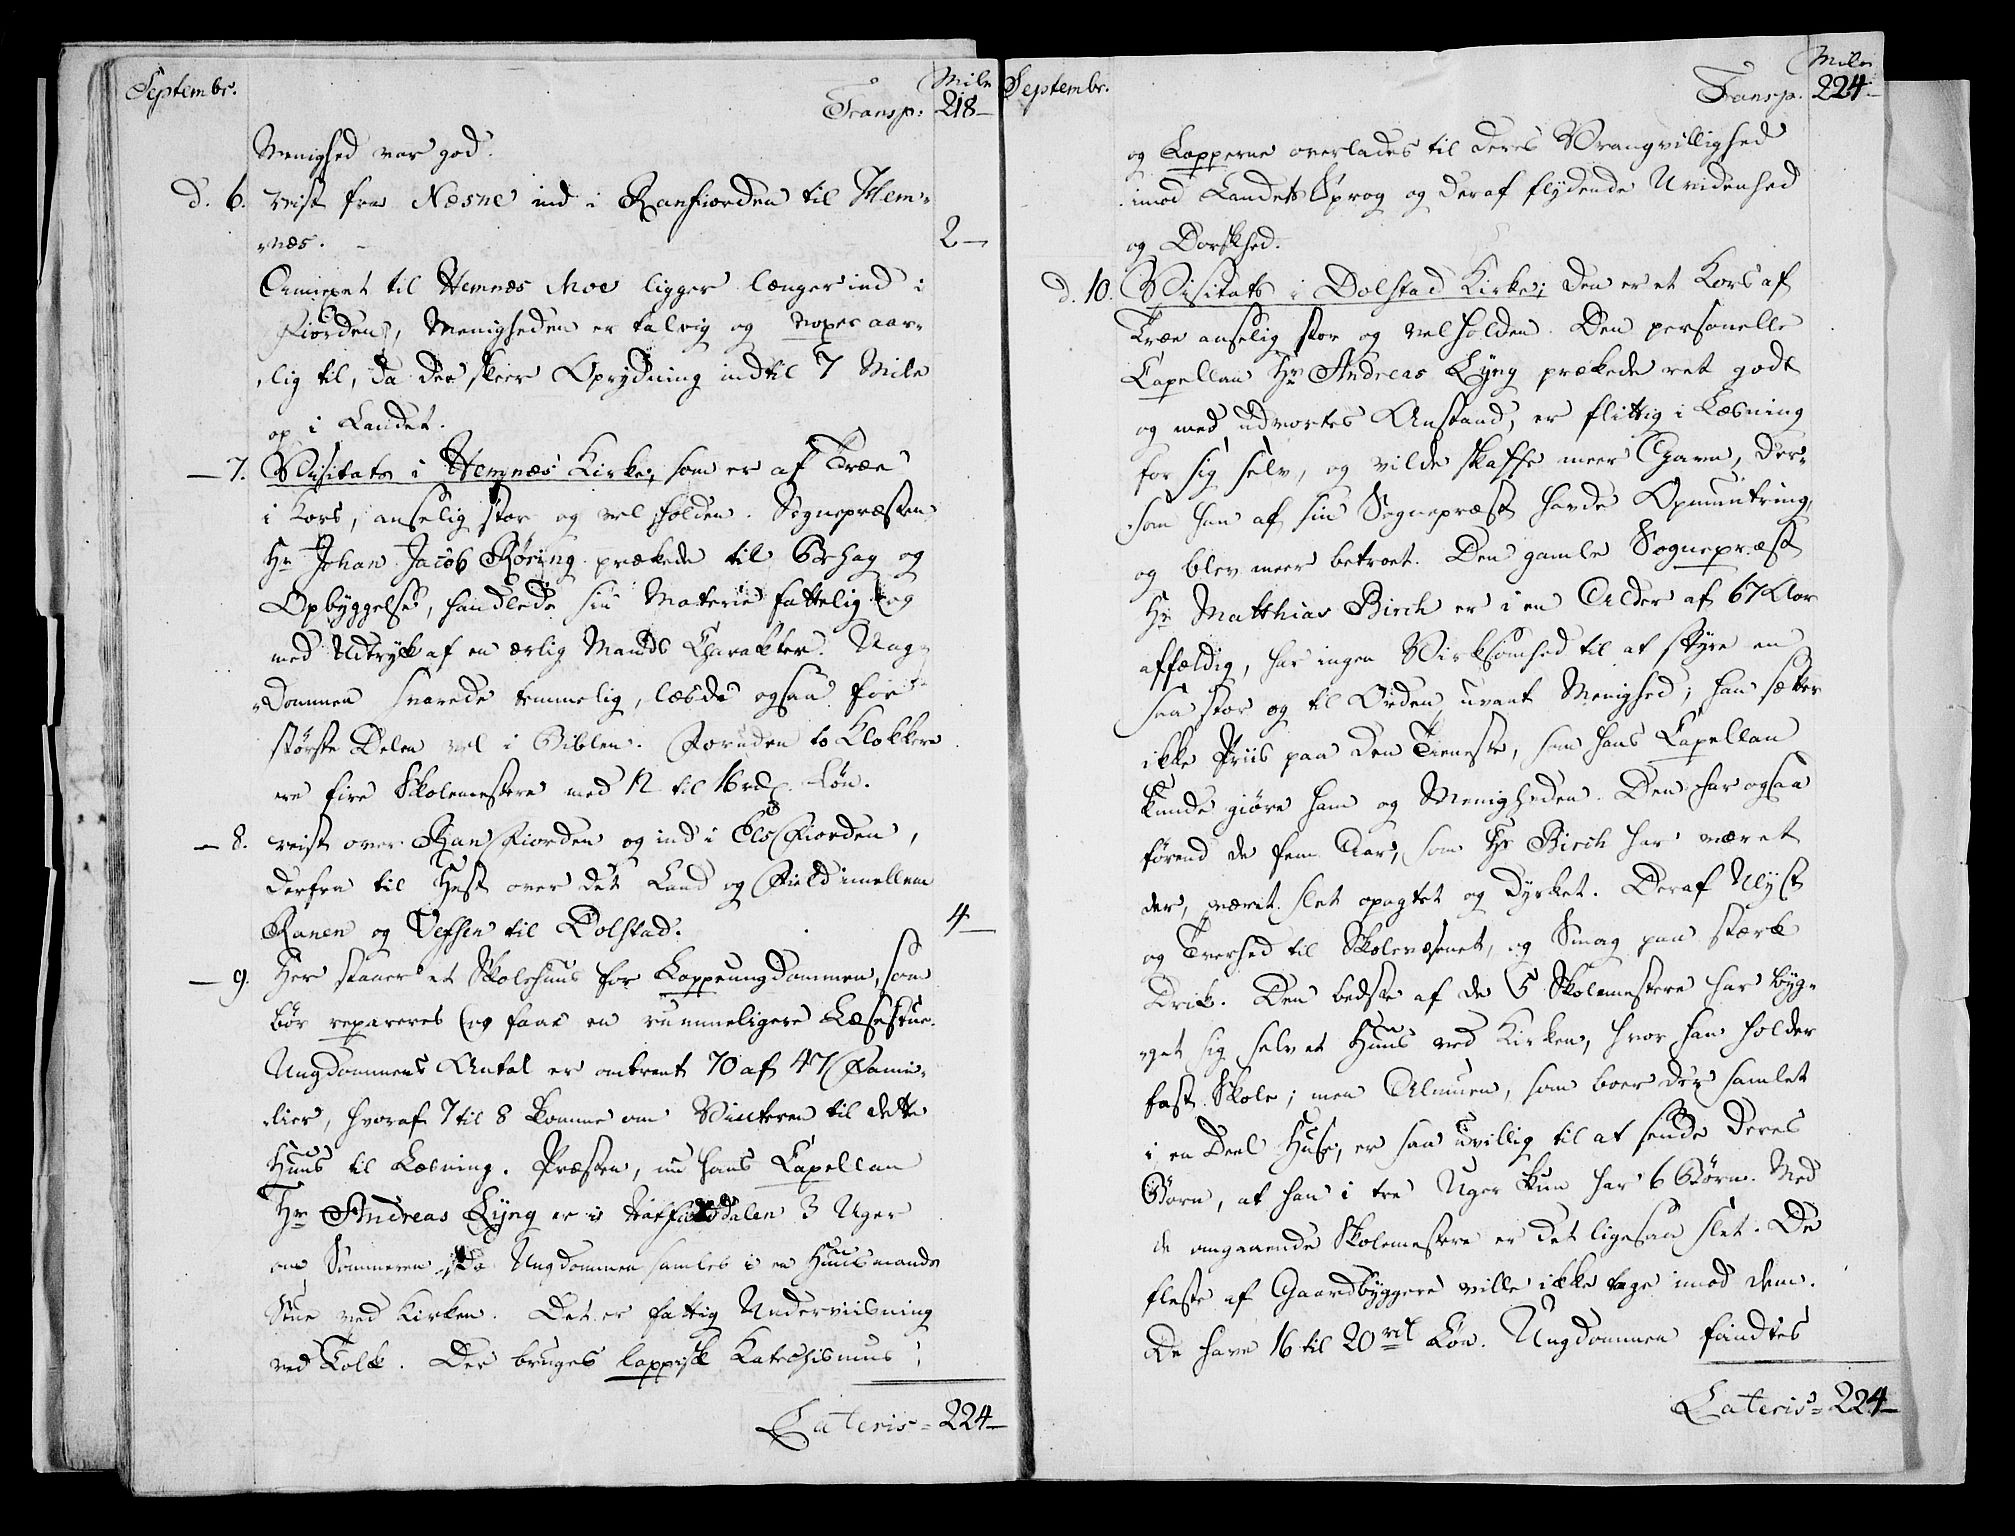 Septembr.
Mile
Transp: 218—
Menighed var god.
d. 6. reist fra Næsne ind i Ranfiorden til Hem-
næs. 2—
Annexet til Hemnæs Moe ligger længer ind i
Fiorden, Menigheden er talrig og voxer aar-
lig til, da der skeer Oprydning indtil 7 Mile
op i Landet.
— 7. Visitats i Hemnæs Kirke, som er af Træe
i Kors, anselig stor og vel holden. Sognepræsten
Hr Johan Jacob Røring prækede til Behag og
Opbyggelse, handlede sin Materie fattelig og
med Udtryk af en ærlig Mands Charakter. Ung-
dommen svarede temmelig, læsde ogsaa for
største Delen vel i Biblen. Foruden to Klokkere
ere fire Skolemestere med 12 til 16 rd. Løn.
— 8. reist over Ran Fiorden og ind i Els Fiorden,
derfra til Hest over det Land og Field imellem
Ranen og Vefsen til Dolstad. 4—
— 9. Her staaer et Skolehuus for Lappeungdommen, som
bør repareres og faae en rummeligere Læsestue.
Ungdommens Antal er omtrent 70 af 47 Fami-
lier, hvoraf 7 til 8 komme om Vinteren til dette
Huus til Læsning. Præsten, nu hans Capellan
Hr Andreas Lyng er i Hatfieldsdalen 3 Uger
om Sommeren, da Ungdommen samles i en Huusmands
Stue ved Kirken. Det er fattig Underviisning
ved Tolk. Der bruges lappisk Katechismus,
Lateris = 224—
Septembr.
Mile
Transp. 224—
og Lapperne overlades til deres Vrangvillighed
imod Landets Sprog og deraf flydende Uvidenhed
og Dorskhed.
d. 10. Visitats i Dolstad Kirke; den er et Kors af
Træe anselig stor og vel holden. Den personelle
Capellan Hr Andreas Lyng prækede ret godt
og med udvortes Anstand, er flittig i Læsning
for sig selv, og vilde skaffe meer Gavn, der-
som han af sin Sognepræst havde Opmuntring,
og blev meer betroet. Den gamle Sognepræst
Hr Matthias Birch er i en Alder af 67 Aar
affældig, har ingen Virksomhed til at styre en
saa stor og til Orden uvant Menighed; han sætter
ikke Priis paa den Tieneste, som hans Capellan
kunde giøre ham og Menigheden. Den har ogsaa
førend de fem Aar, som Hr Birch har været
der, været slet opagtet og dyrket. Deraf Ulyst
og Tverhed til Skolevæsenet, og Smag paa stærk
Drik. Den bedste af de 5 Skolemestere har byg-
get sig selv et Huus ved Kirken, hvor han holder
fast Skole; men Almuen, som boer der samlet
i en Deel Huse, er saa uvillig til at sende deres
Børn, at han i tre Uger kun har 6 Børn. Med
de omgaaende Skolemestere er det ligesaa slet. De
fleste af Gaardbyggere ville ikke tage imod dem.
De have 16 til 20 rd Løn. Ungdommen fandtes
Lateris = 224—